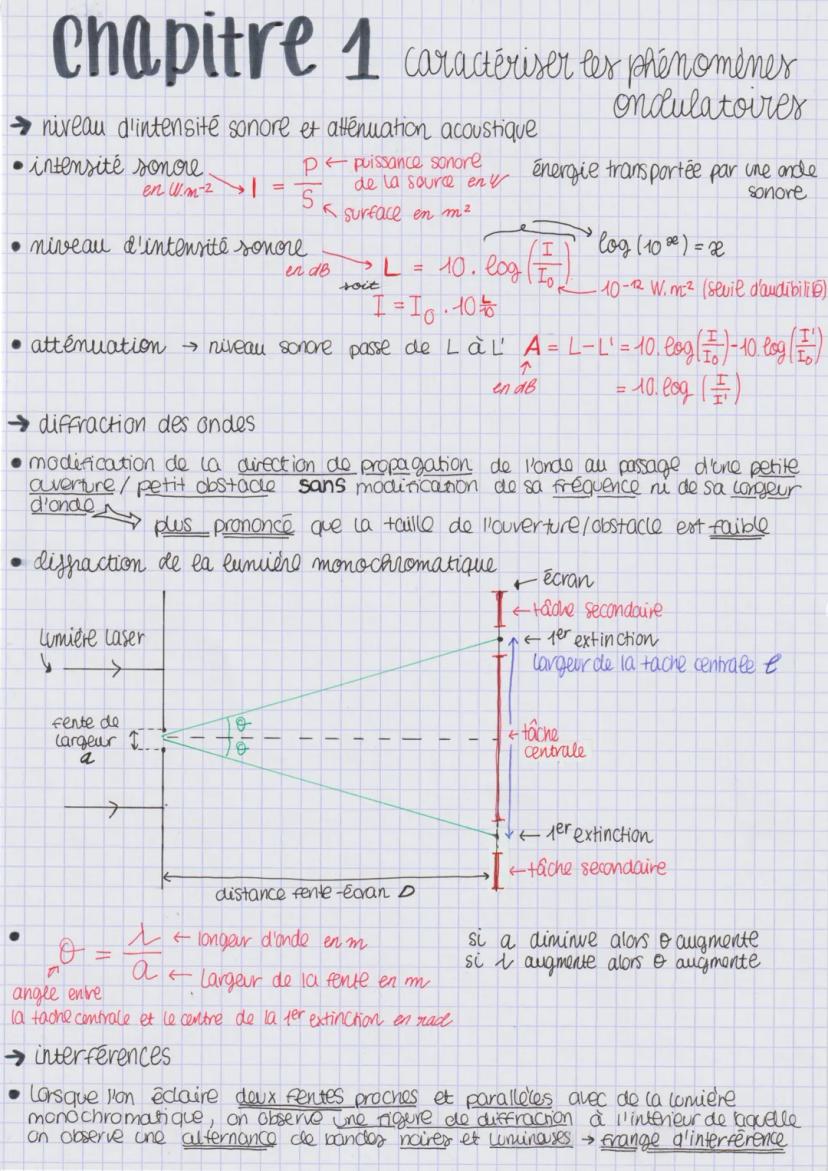 chapitre 1 caractériser les phénomènes
ondulatoires
→ niveau d'intensité sonore et atténuation acoustique
• intensité sonore
en W.m-2
I = P/S
← puissance sonore
de la source en W
surface en m²
énergie transportée par une onde
sonore
• niveau d'intensité sonore
en dB
L = 10. log(I/I₀)
log(10ˣ) = x
10⁻¹² W.m² (seuil d'audibilité)
soit
I = I₀ . 10^L/10
• atténuation → niveau sonore passe de L à L' A = L-L' = 10.log(I/I₀)-10.log(I'/I₀)
en dB
= 10.log (I/I')
→ diffraction des ondes
• modification de la direction de propagation de l'onde au passage d'une petite
ouverture/ petit obstacle sans modification de sa fréquence ni de sa largeur
d'onde
⇒ plus prononcé que la taille de l'ouverture/obstacle est faible
• diffraction de la lumière monochromatique
← écran
← tâche secondaire
lumière laser
← 1er extinction
largeur de la tache centrale l
fente de
largeur
a
θ
θ
← tâche
centrale
← 1er extinction
← tâche secondaire
distance fente-écran D
• θ = λ/a
← longeur d'onde en m
← largeur de la fente en m
si a diminue alors θ augmente
si λ augmente alors θ augmente
angle entre
la tache centrale et le centre de la 1er extinction en rad
→ interférences
• lorsque l'on éclaire deux fentes proches et parallèles avec de la lumière
monochromatique, on observe une figure de diffraction à l'intérieur de laquelle
on observe une alternance de bandes noires et lumineuses → frange d'interférence